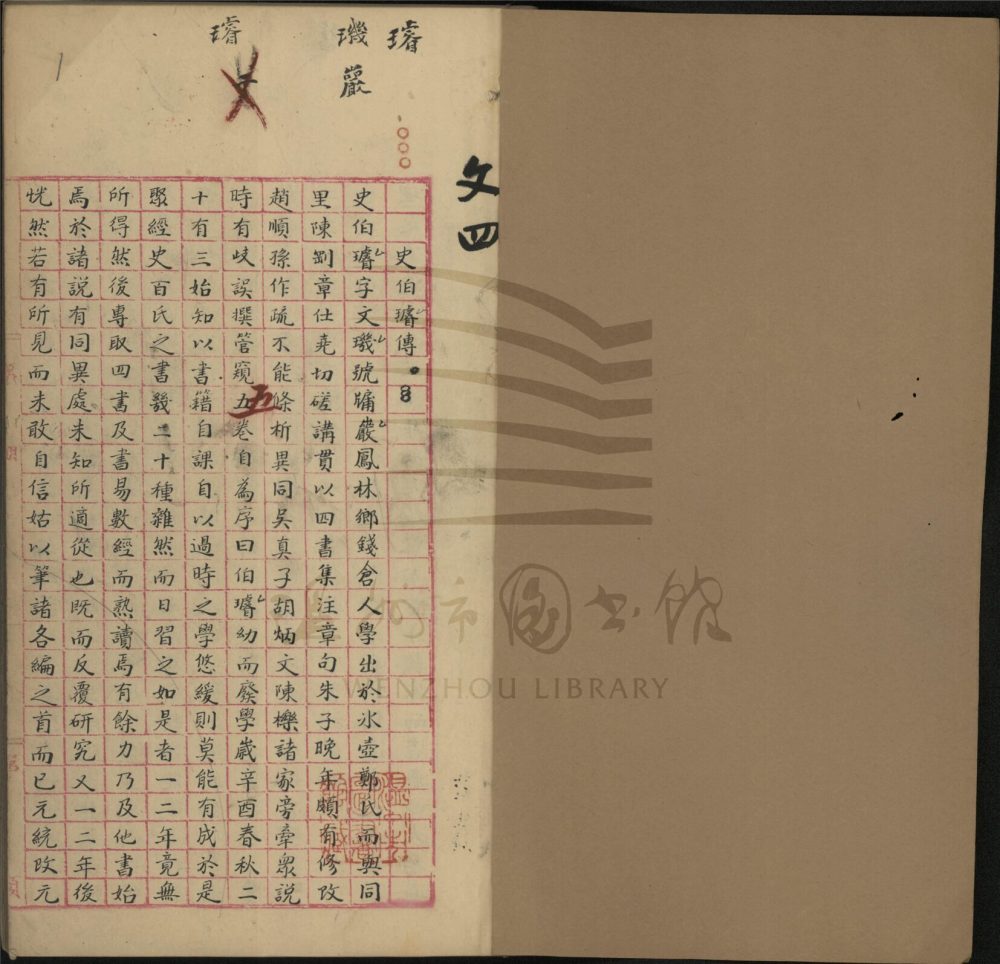 文四
璿
璣
巖
璿
史伯璿傳
史伯璿字文璣號牗巖鳳林鄉錢倉人學出於氷壺鄭氏而與同
里陳剴章仕堯切磋講貫以四書集注章句朱子晚年頗有修改
趙順孫作疏不能條析異同吳真子胡炳文陳櫟諸家旁牽眾說
時有歧誤撰管窺五卷自為序曰伯璿幼而廢學歲辛酉春秋二
十有三始知以書籍自課自以過時之學悠緩則莫能有成於是
聚經史百氏之書幾二十種雜然而日習之如是者一二年竟無
所得然後專取四書及書易數經而熟讀焉有餘力乃及他書始
焉於諸說有同異處未知所適從也既而反覆研究又一二年後
恍然若有所見而未敢自信姑以筆諸各編之首而已元統改元
五
溫州市圖書館
WENZHOU LIBRARY